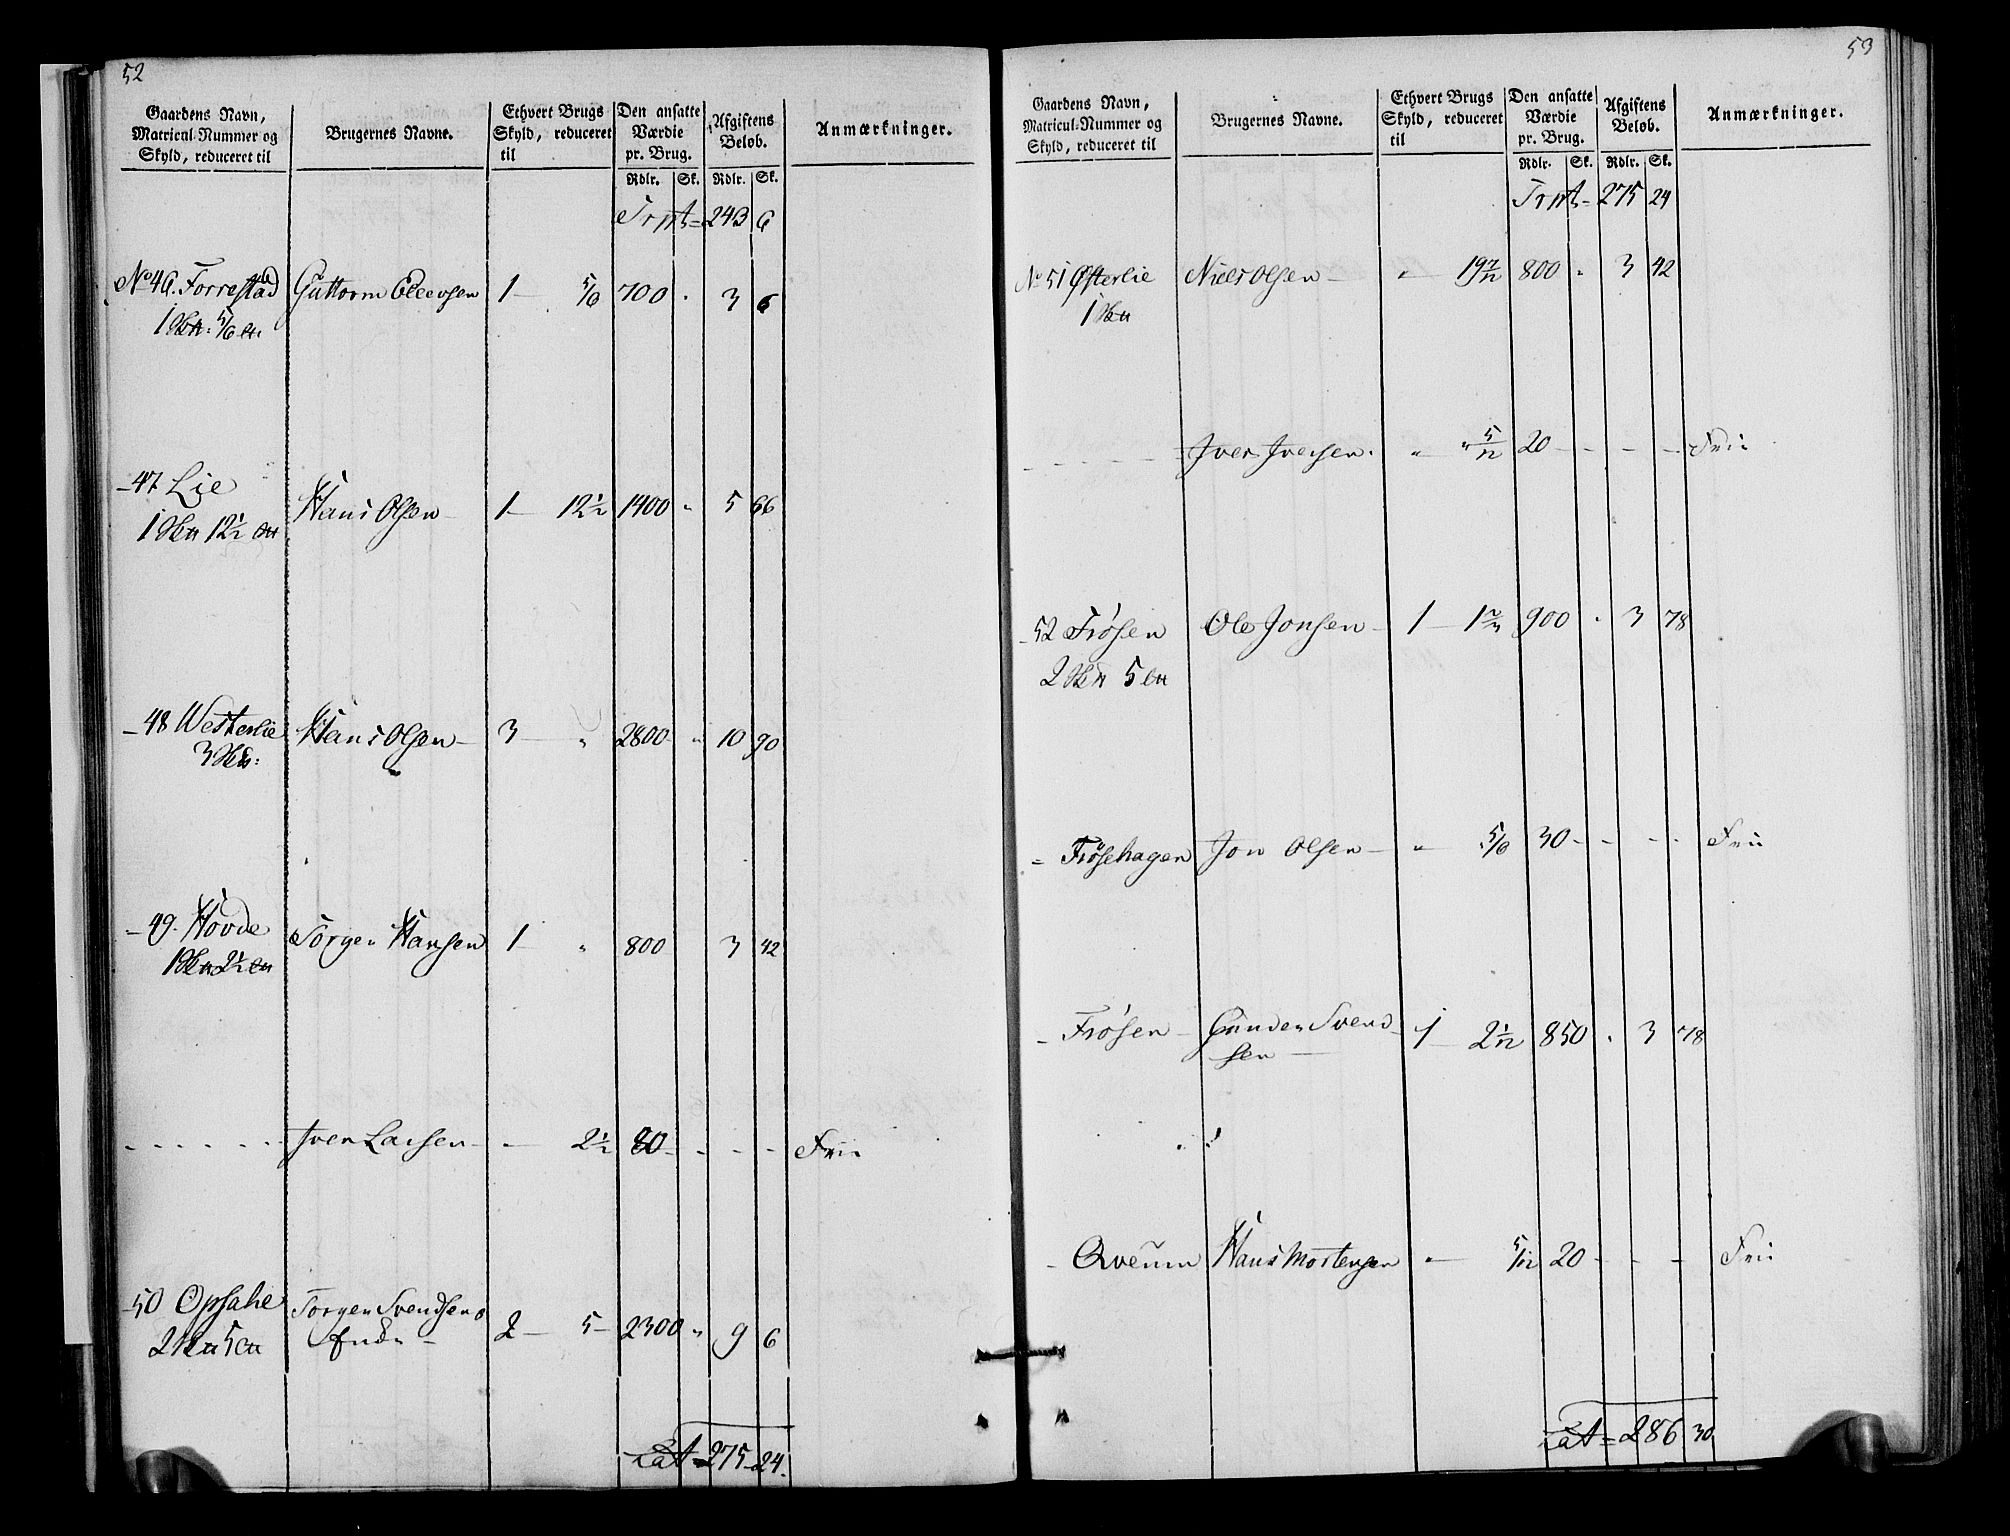 52
Gaardens Navn, Matricul-Nummer og Skyld, reduceret til | Brugernes Navne. | Ethvert Brugs Skyld, reduceret til | Den ansatte Værdie pr. Brug. | Afgiftens Beløb. | Anmærkninger.
Rdlr. Sk. Rdlr. Sk.
Trpt = 243 6
No 46. Forrestad Guttorm Ellevsen 1 — 5/6 700 " 3 6
1 5/6
— 47 Lie
Hans Olsen — 1 — 12½ 1400 " 5 66
1 12½
— 48 Westerlie Hans Olsen — 3 — " 2800 — " 10 90
3
— 49. Hovde Torger Hansen 1 — " 800 3 42
1 2½
- - - - - - Iver Larsen — - 2½ 80 - - - - Frii
— 50 Opsahl Torger Svendsens
Enke — 2 — 5 — 2300 " 9 6
2 5
Lat = 275 24.
53
Gaardens Navn, Matricul-Nummer og Skyld, reduceret til | Brugernes Navne. | Ethvert Brugs Skyld, reduceret til | Den ansatte Værdie pr. Brug. | Afgiftens Beløb. | Anmærkninger.
Rdlr. Sk. Rdlr. Sk.
Trpt = 275 24
No 51 Østerlie Niels Olsen — " 19 7/12 800 " 3 42
1
- - - - - Iver Iversen. " " 5/12 20 - - - - Frii
— 52 Frøsen Ole Jonsen — 1 — 1 2/3 900 " 3 78
2 5
= Frøsehagen Jon Olsen — " 5/6 30 - - - - Frii
- Frøsen — Gunder Svend-
sen — 1 — 2 1/12 850 " 3 78
- Qveum Hans Mortensen " 5/12 20 - - - - Frii
Lat = 286 30